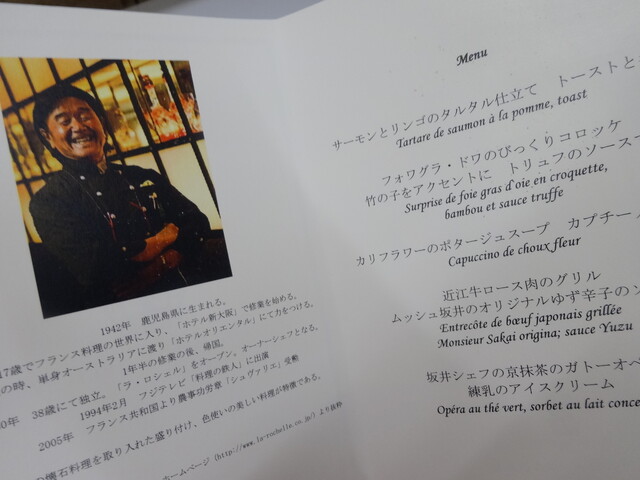 1942年　鹿児島県に生まれる。
17歳でフランス料理の世界に入り、「ホテル新大阪」で修業を始める。
の時、単身オーストラリアに渡り「ホテルオリエンタル」にて力をつける。
1年半の修業の後、帰国。
0年　38歳にて独立。「ラ・ロシェル」をオープン。オーナーシェフとなる。
1994年2月　フジテレビ「料理の鉄人」に出演
2005年　フランス共和国より農事功労章「シュヴァリエ」受勲
の懐石料理を取り入れた盛り付け、色使いの美しい料理が特徴である。
ホームページ (http://www.la-rochelle.co.jp/) より抜粋
Menu
サーモンとリンゴのタルタル仕立て　トーストと
Tartare de saumon à la pomme, toast
フォワグラ・ドワのびっくりコロッケ
竹の子をアクセントに　トリュフのソース
Surprise de foie gras d'oie en croquette,
bambou et sauce truffe
カリフラワーのポタージュスープ　カプチー
Capuccino de choux fleur
近江牛ロース肉のグリル
ムッシュ坂井のオリジナルゆず辛子のソ
Entrecôte de bœuf japonais grillée
Monsieur Sakai origina; sauce Yuzu
坂井シェフの京抹茶のガトーオペ
練乳のアイスクリーム
Opéra au thé vert, sorbet au lait conce